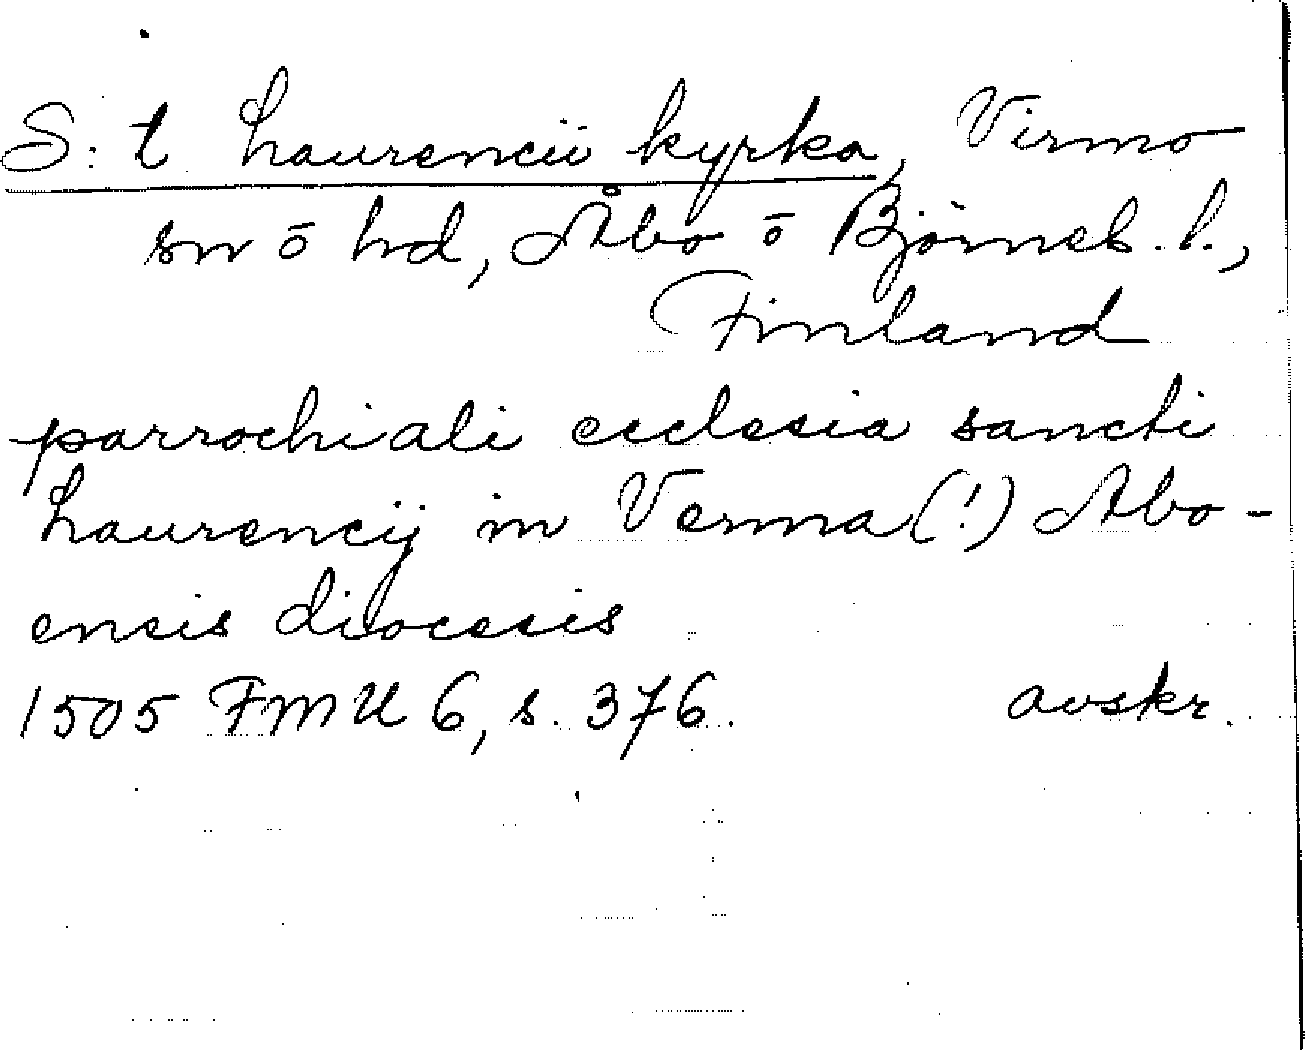 S:t Laurencii kyrka, Virmo
sn ō hd, Åbo ō Björneb. l.,
Finland
parrochiali ecclesia sancti
Laurencij in Verma (!) Abo-
ensis diocesis
1505 FMU 6, s. 376. avskr.